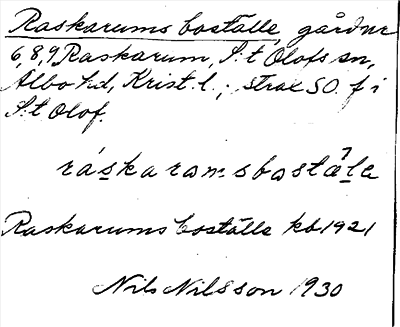 Raskarums boställe, gård nr
6,8,9 Raskarum, S:t Olofs sn,
Albo hd, Krist. l.; strax SO. f i
S:t Olof.
ráskaromsbostäla
Raskarums boställe kb 1921
Nils Nilsson 1930